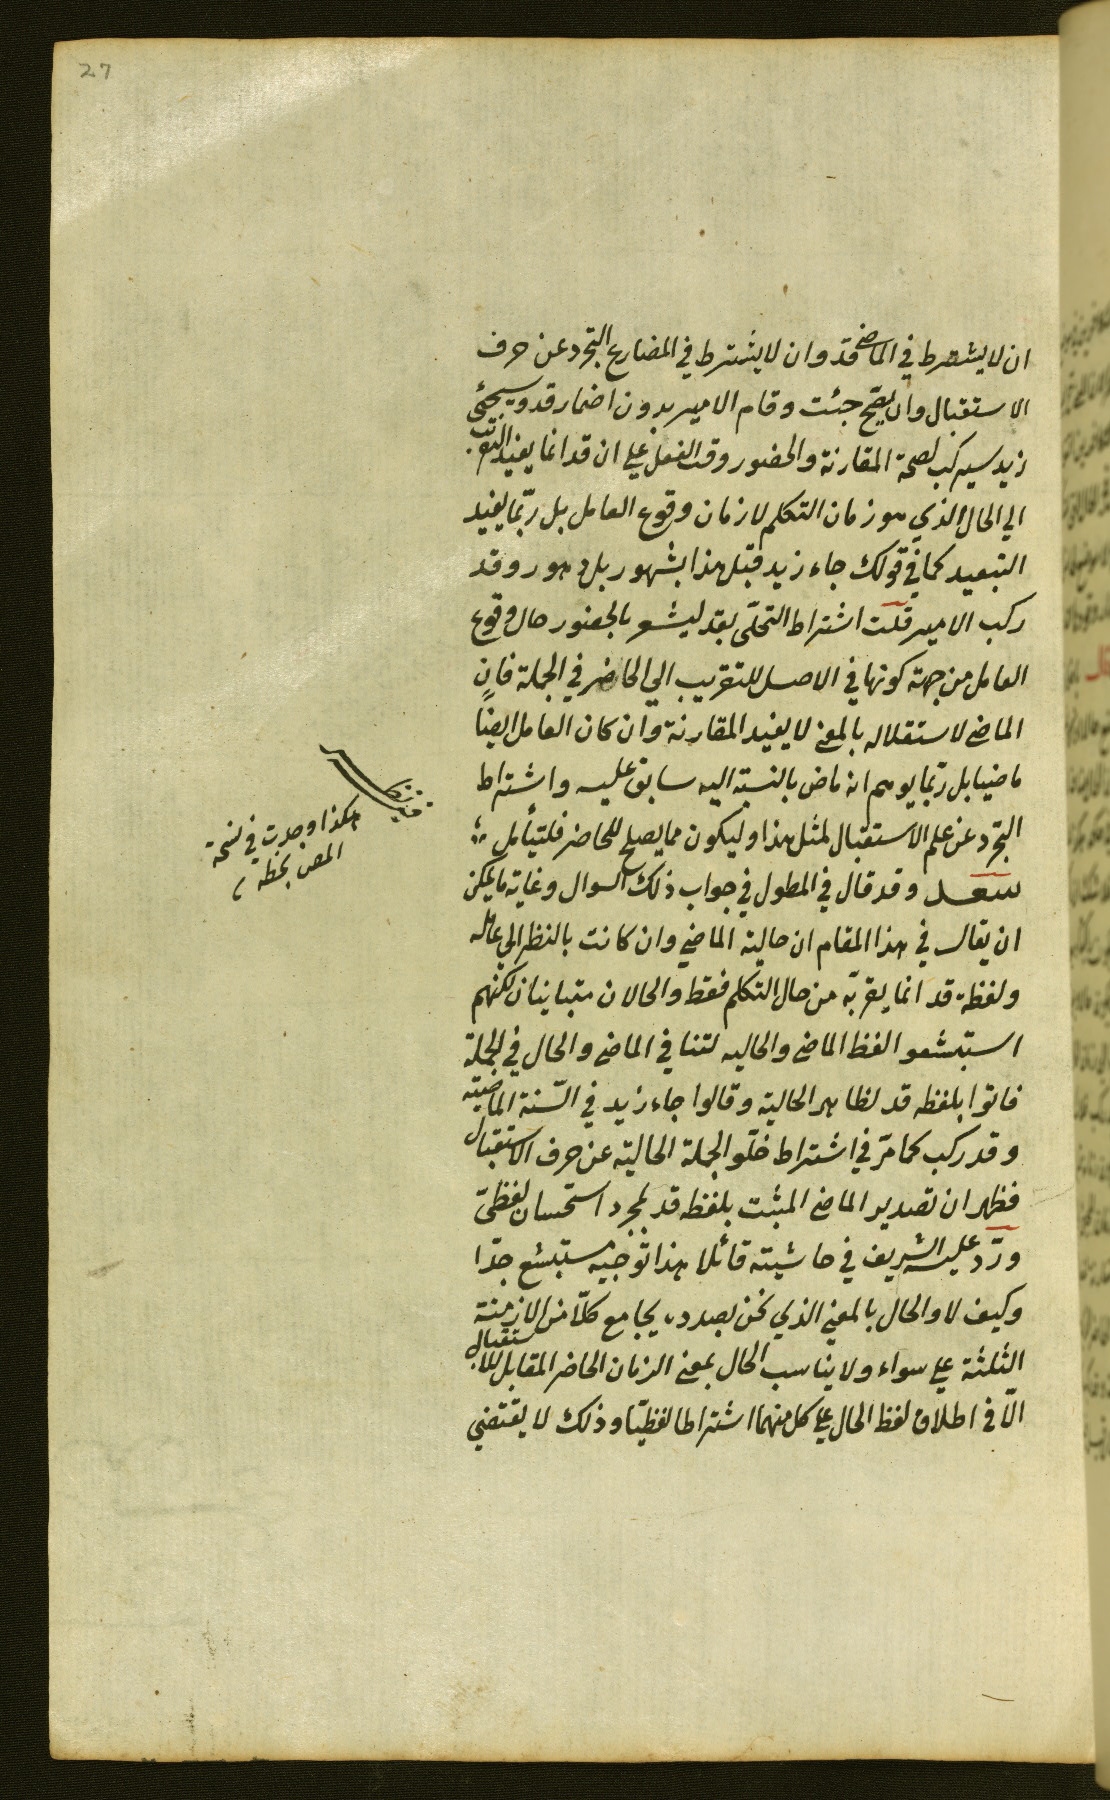 27
ان لا يشترط في الماضي قد وان لا يشترط في المضارع التجرد عن حرف
الاستقبال وان يصح جئت وقام الامير بدون اضمار قد ويجئ
زيد سيركب لصحة المقارنة والحضور وقت الفعل علي ان قد انما يفيد التقريب
الي الحال الذي هو زمان التكلم لا زمان وقوع العامل بل ربّما يفيد
التبعيد كما في قولك جاء زيد قبل هذا بشهور بل دهور وقد
ركب الامير قلت اشتراط التحلّى بقد ليشعر بالحضور حال وقوع
العامل من جهة كونها في الاصل للتقريب الي الحاضر في الجملة فانٍ
الماضي لاستقلاله بالمعني لا يفيد المقارنة وان كان العامل ايضًا
ماضيا بل ربّما يوهم انه ماض بالنسبة اليه سابق عليه واشتراط
التجرّد عن علم الاستقبال لمثل هذا وليكون مما يصلح للحاضر فليتأمل
سعد وقد قال في المطول في جواب ذلك السوال وغاية ما يمكن
ان يقال في هذا المقام ان حالية الماضي وان كانت بالنظر الي عامله
ولفظة قد انما يقربّه من حال التكلم فقط والحالان متباينان لكنهم
استبشعوا لفظ الماضي والحاليه لتنافي الماضي والحال في الجملة
فاتوا بلفظه قد لظاهر الحالية وقالوا جاء زيد في السّنة الماضية
وقد ركب كما مرّ في اشتراط خلّو الجملة الحالية عن حرف الاستقبال
فظهر ان تصدير الماضي المثبت بلفظه قد لمجرد استحسان لفظيّ
وردّ عليه الشريف في حاشيته قائلا هذا توجيه مستبشع جدّا
وكيف لا والحال بالمعني الذي نحن بصدده يجامع كلّا من الازمنة
الثلثة علي سواء ولا يناسب الحال بمعني الزمان الحاضر المقابل للاستقبال
الّا في اطلاق لفظ الحال علي كل منهما اشتراطا لفظيّا وذلك لا يقتضي
هكذا وجدت في نسخة
المص بخطه